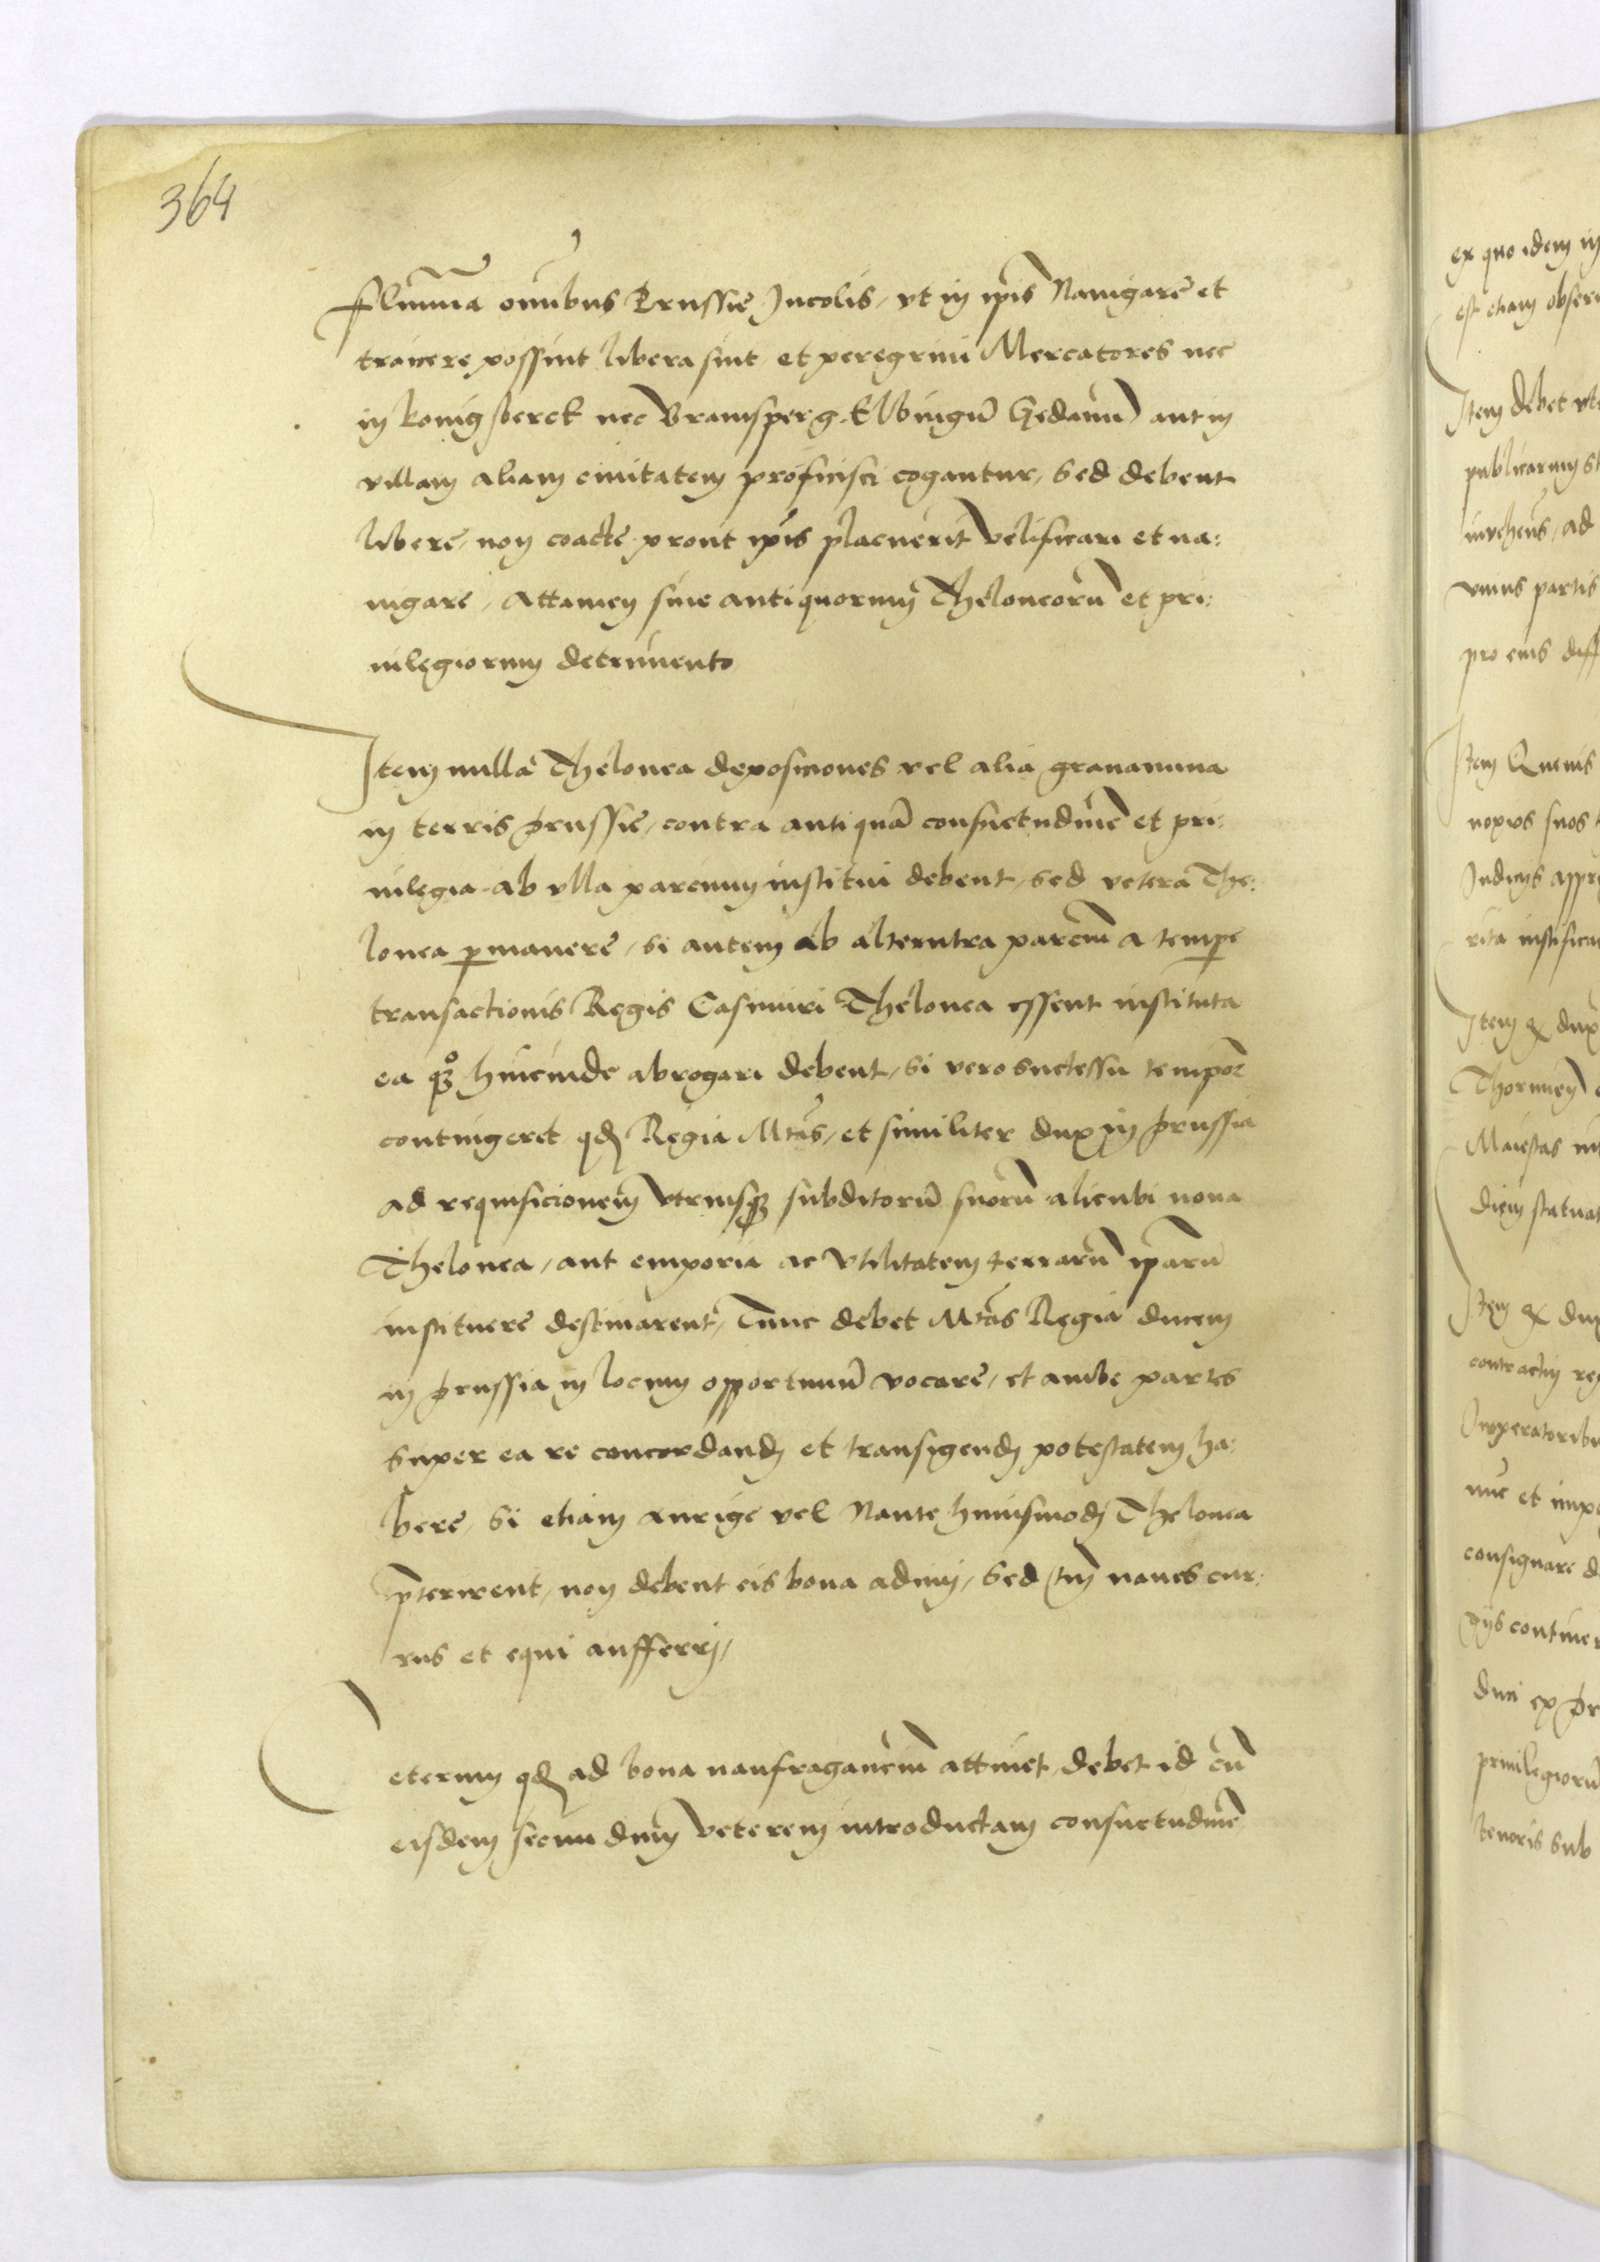 364
Flumina omnibus Prussie Incolis, vt in ipsis Nauigare et
traicere possint libera sint et peregrini Mercatores nec
in konigsberck nec Braunsperg Elbingum Gedanum aut in
vllam aliam ciuitatem proficisci cogantur, Sed debent
libere, non coacte prout ipsis placuerit velificari et na:
uigare, Attamen sine antiquorum Theloneorum et pri:
uilegiorum detrimento
Item nulla Thelonea deposiciones vel alia grauamina
in terris prussie, contra antiquam consuetudinem et pri:
uilegia ab vlla parcium institui debent, Sed vetera The:
lonea permanere, Si autem ab alterutra parcium a tempore
transactionis Regis Casimiri Thelonea essent instituta
ea quoque hincinde abrogari debent, Si vero successu temporis
contingeret quod Regia Mtas, et similiter dux in prussia
ad requisicionem vtriusque subditorum suorum alicubi noua
Thelonea, aut emporia ac vtilitatem terrarum ipsarum
instituere destinarent, Tunc debet Mtas Regia ducem
in prussia in locum opportunum vocare, et ambe partes
super ea re concordandi et transigendi potestatem ha:
bere, Si etiam aurige vel Naute huiusmodi Thelonea
preterirent, non debent eis bona adimi, Sed tantum naues cur:
rus et equi aufferri,
Ceterum quod ad bona naufragancium attinet, debet id cum
eisdem secundum veterem introductam consuetudinem
ex quo idem in
est etiam obser
Item debet vt
publicarum st
inuehens, ad
vnius partis
pro eius diff
Item Quenis
noxios suos
Iudicijs appr
rita iustifica
Item dux
Thorunen
Maiestas
diem statuat
Item dux
contractum reg
Imperatoribu
nunc et impo
consignare d
gijs continen
duci ex pr
priuilegiorum
tenoris sub